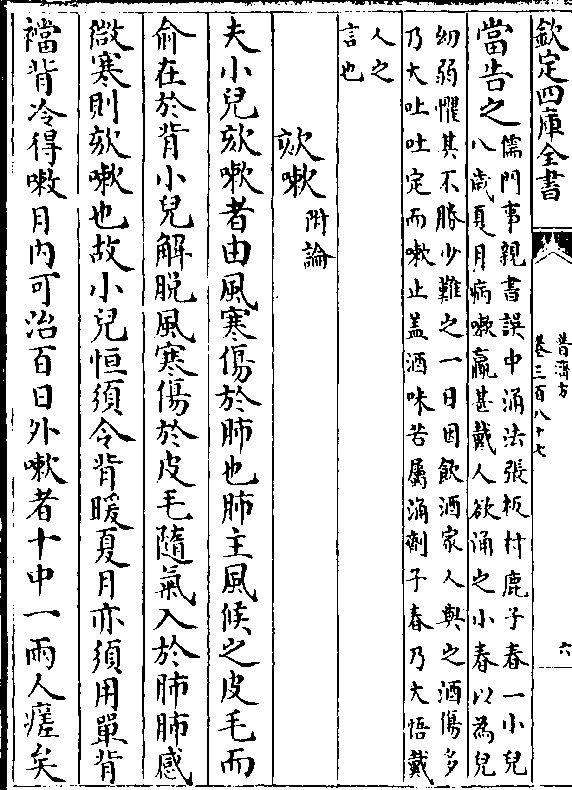 欽定四庫全書
普濟方
卷三百八十七
六
當告之
儒門事親書誤中涌法張板村鹿子春一小兒
八歲夏月病嗽羸甚戴人欲涌之小春以為兒
幼弱懼其不勝少難之一日因飲酒家人與之酒傷多
乃大吐吐定而嗽止盖酒味苦屬涌劑子春乃大悟戴
人之
言也
欬嗽附論
夫小兒欬嗽者由風寒傷於肺也肺主風候之皮毛而
俞在於背小兒解脱風寒傷於皮毛隨氣入於肺肺感
微寒則欬嗽也故小兒恒須令背暖夏月亦須用單背
襠背冷得嗽月内可治百日外嗽者十中一兩人瘥矣